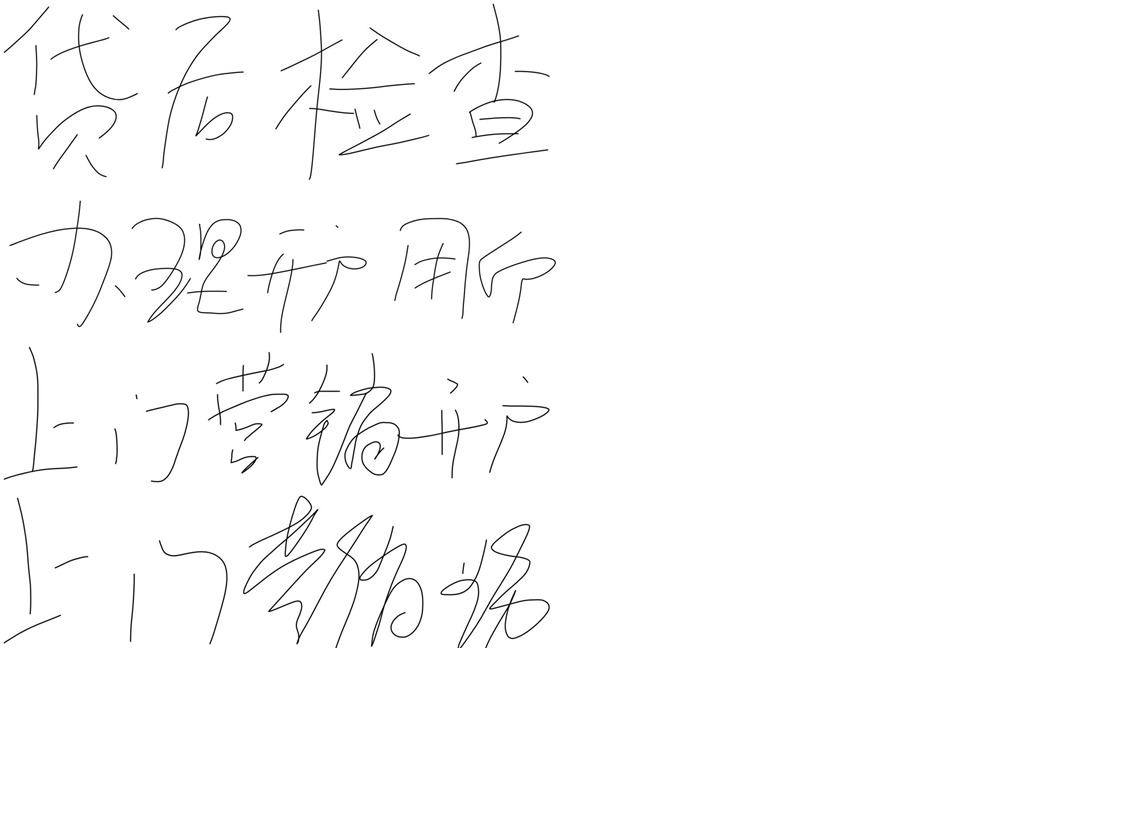 贷后检查
办理开户用印
上门营销开户
上门营销